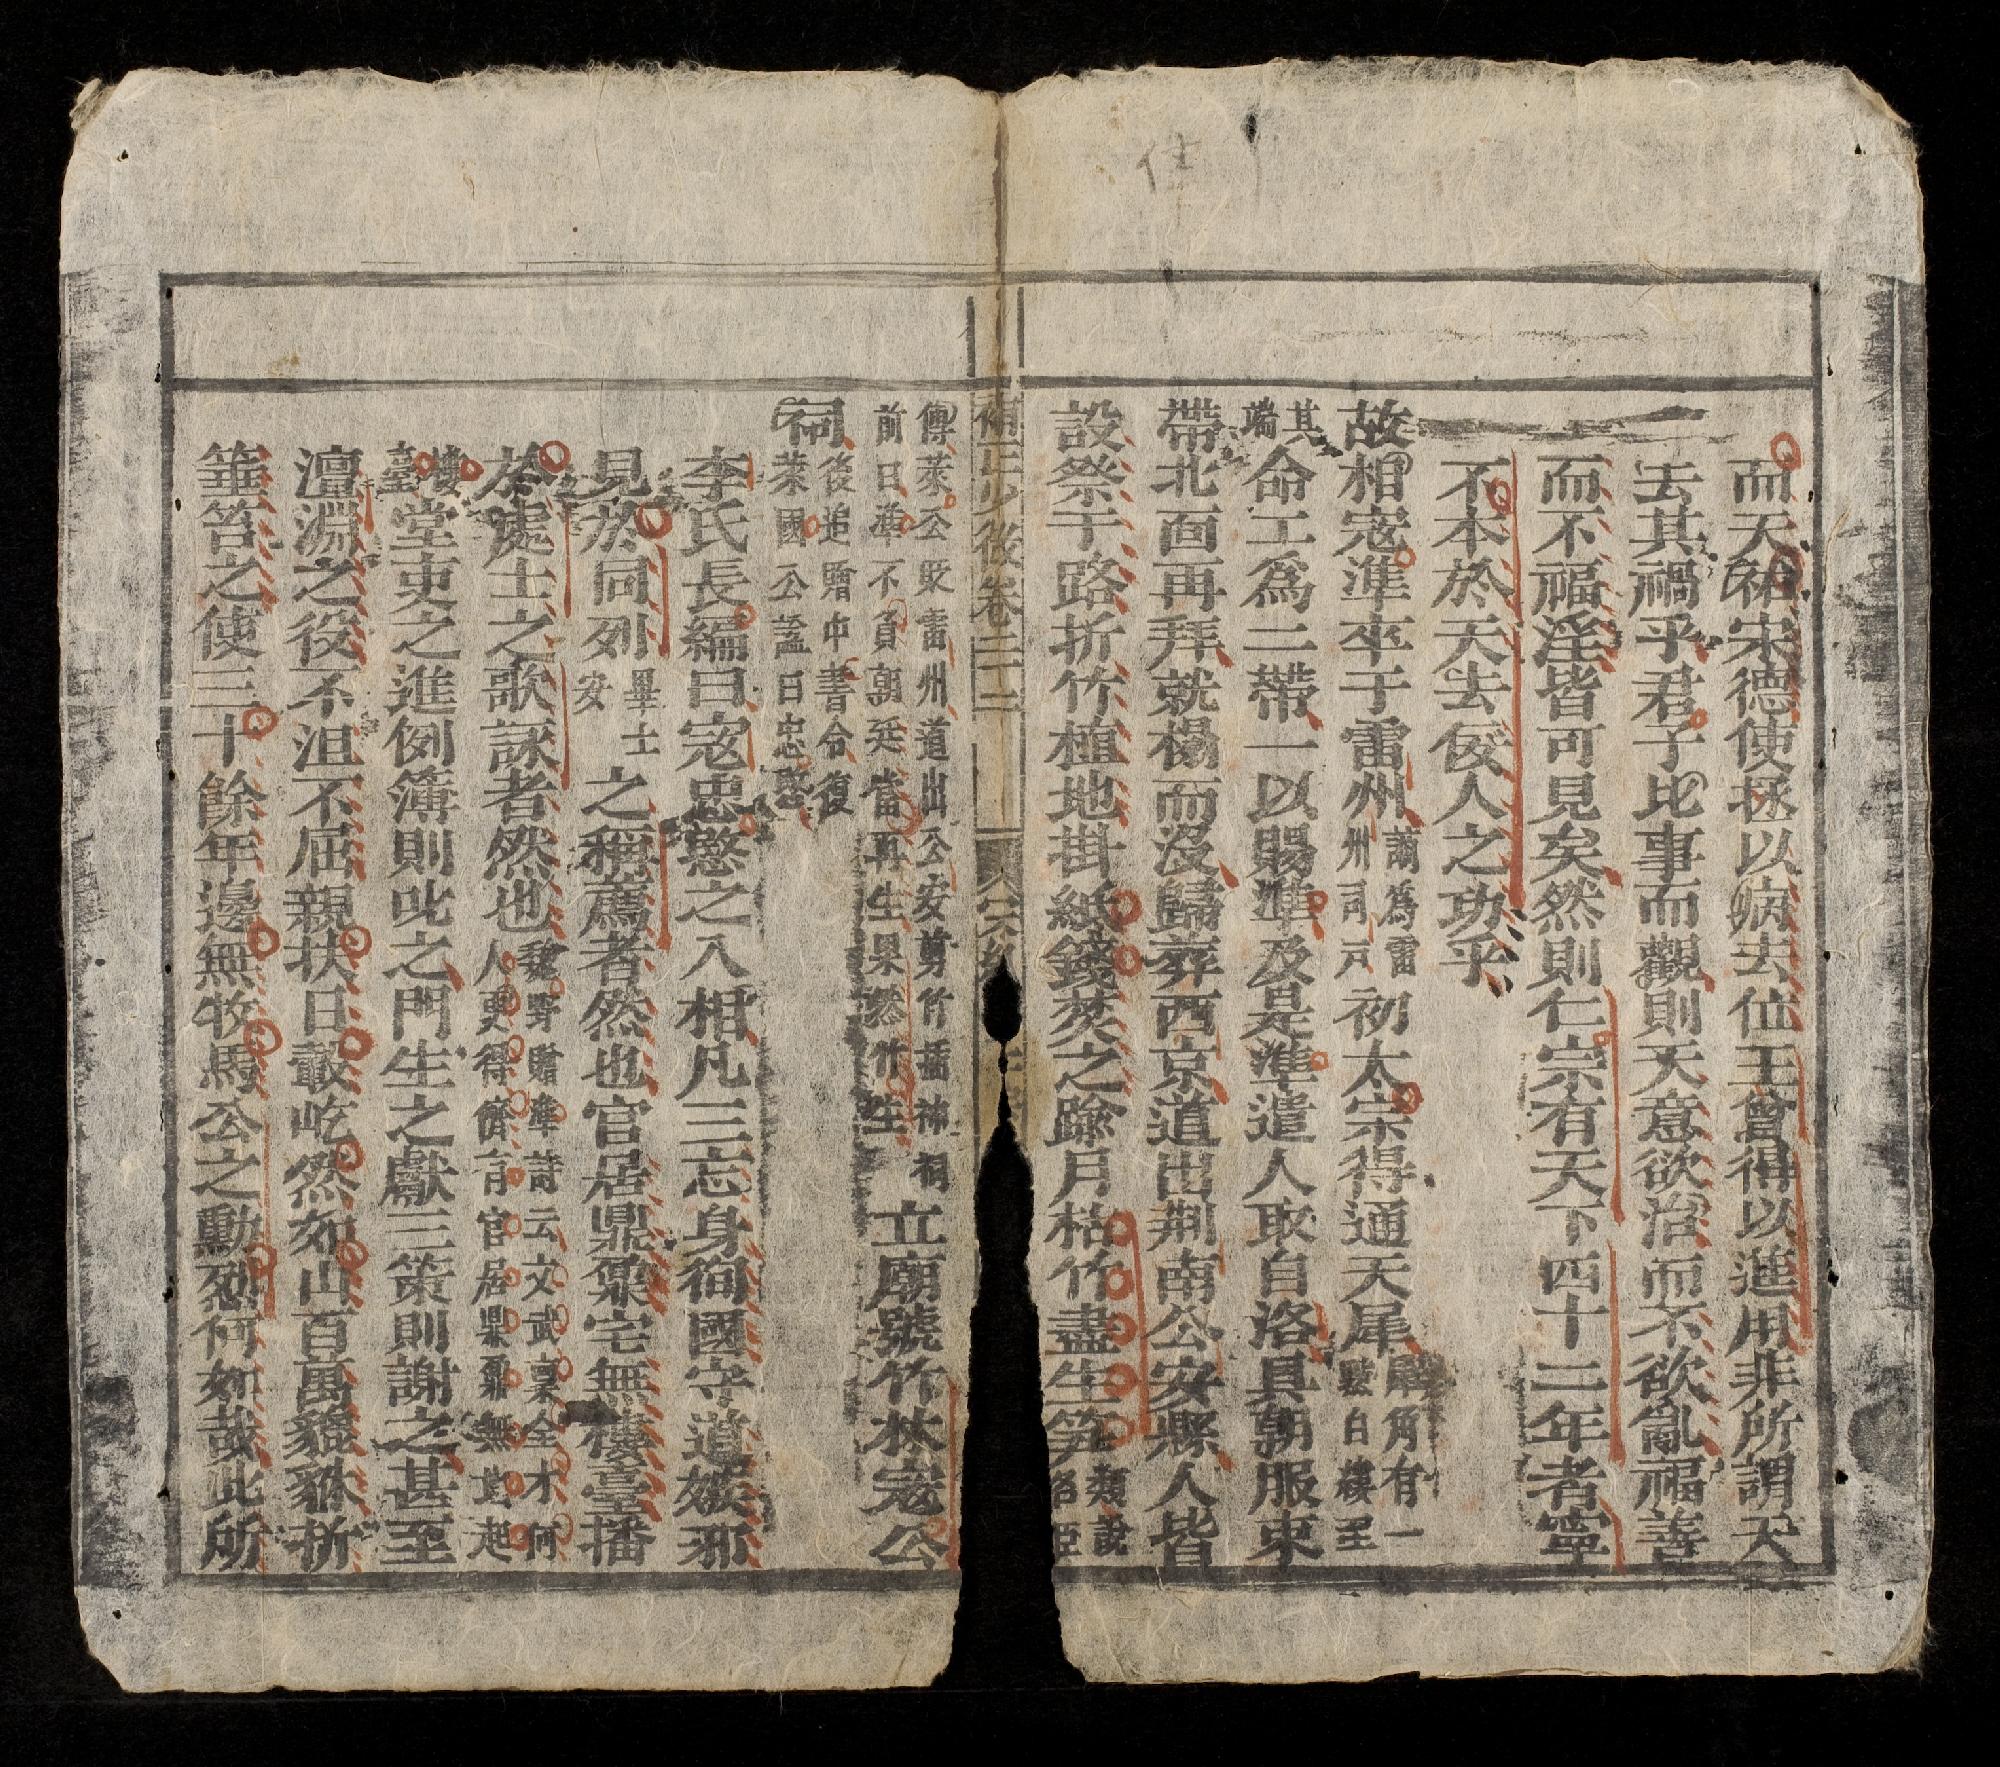 仕
而天祐宋德使拯以病去位王曾得以進用非所謂天
去其禍乎君子比事而觀則天意欲治而不欲亂福善
而不福淫皆可見矣然則仁宗有天下四十二年者寧
不本於天去佞人之功乎
故相宼準卒于雷州
前為雷
州司戶
初太宗得通天犀
角有一
白樓至
其
端
命工為二帶一以賜準及是準遣人取自洛具朝服束
帶北面再拜就榻而沒歸葬西京道出荆南公安縣人皆
設祭于路折竹植地掛紙錢焚之踰月枯竹盡生笋
類說
名臣
補正少微卷二十二
傳萊公貶雷州道出公安剪竹插神祠
前曰準不負朝廷當再生果然竹生
立廟號竹林宼公
祠
後追贈中書令復
萊國公謚曰忠愍
李氏長編曰宼忠愍之入相凡三忘身徇國守道嫉邪
見於同列
畢士
安
之稱薦者然也官居鼎鼐宅無樓臺播
於處士之歌詠者然也
魏野贈準詩云文武稟全才何
人更得儕有官居鼎鼐無地起
樓
臺
堂吏之進例簿則叱之門生之獻三策則謝之甚至
澶淵之役不沮不屈親扶日轂屹然如山百萬貔貅折
箠笞之使三十餘年邊無牧馬公之勳烈何如哉此所